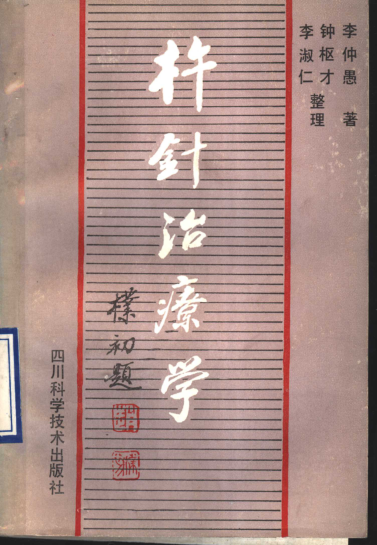 李仲愚 著
钟枢才
李淑仁 整理
杵針治療学
樸初題
四川科学技术出版社